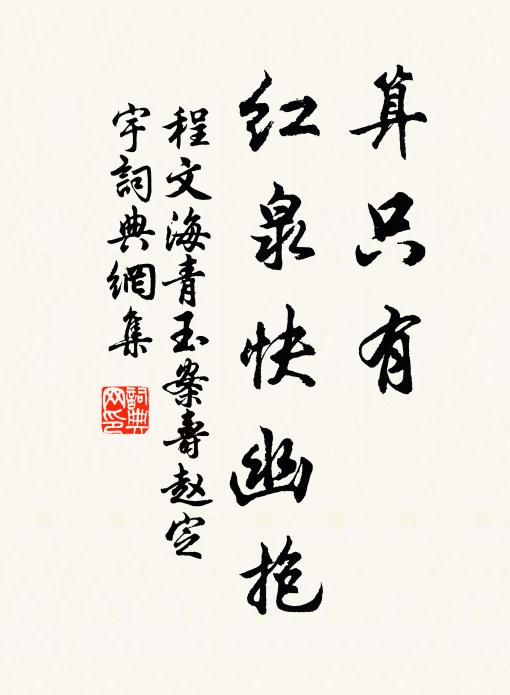 算只有
红泉快幽抱
程文海青玉案壽赵定
宇詞典網集
詞典
网印